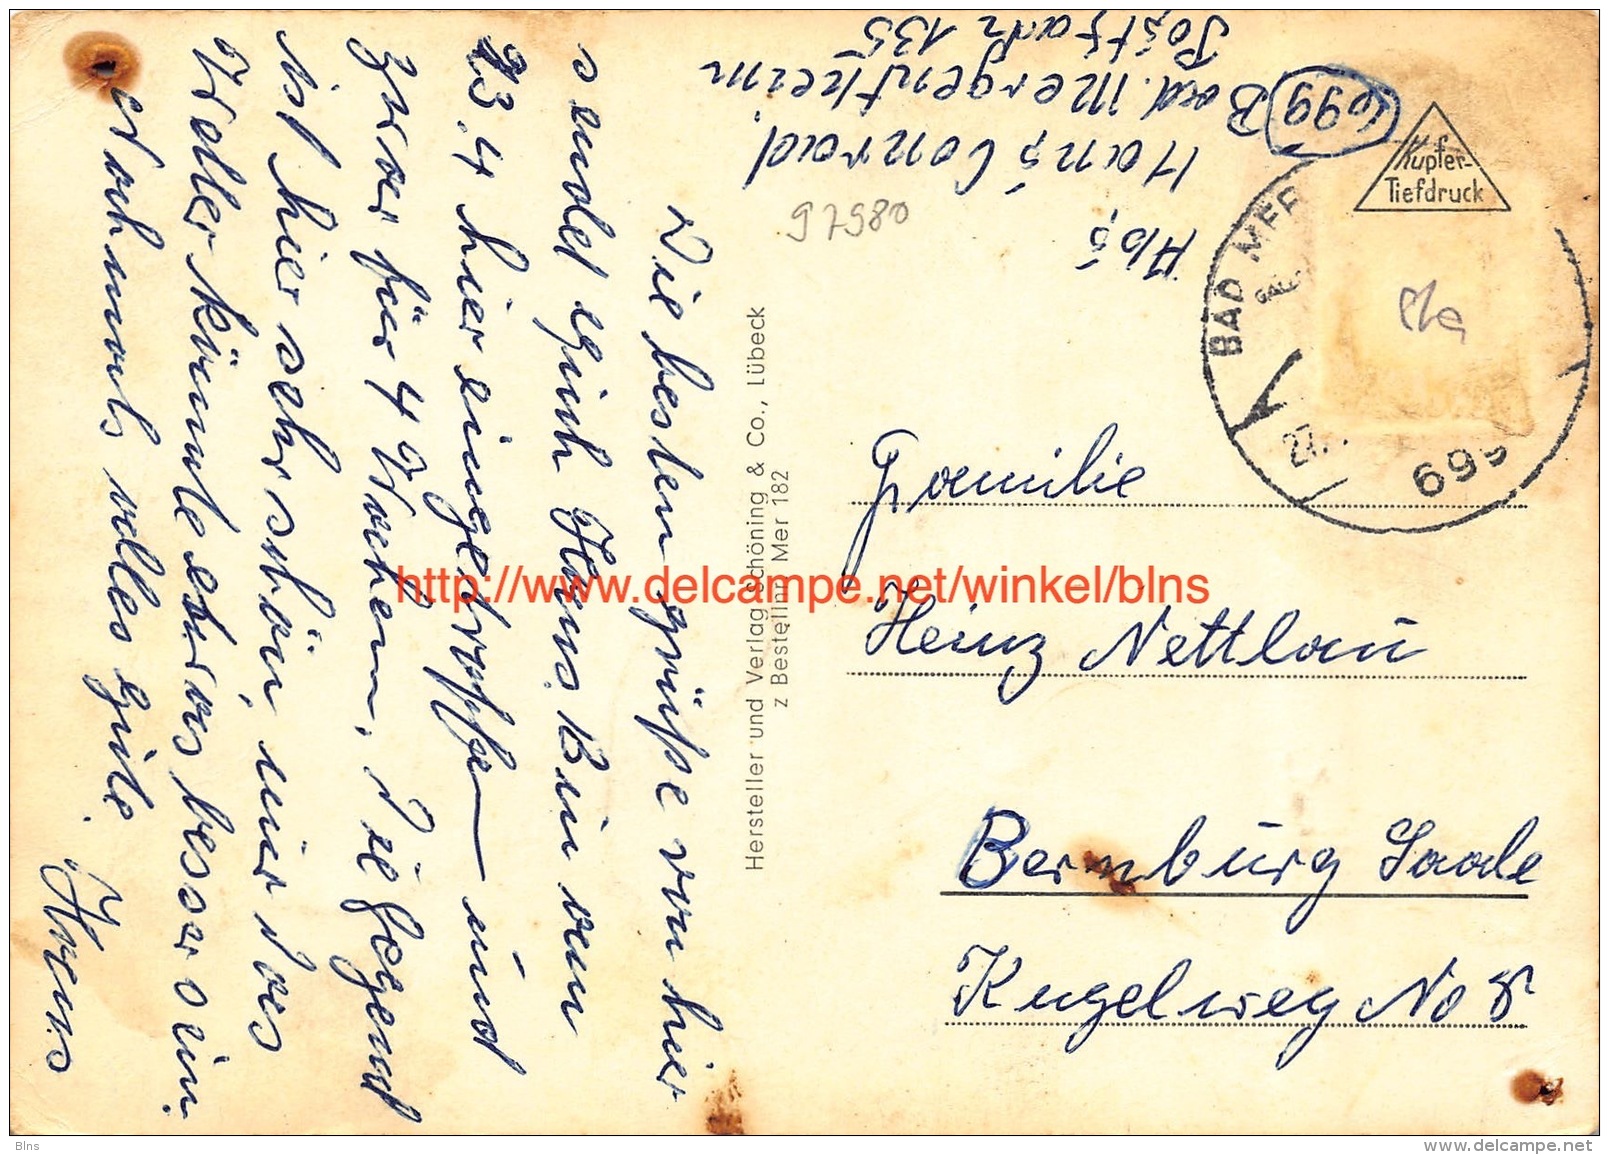 Die besten grüße von hier
sendet Euch Hans. Bin am
23.4 hier eingetroffen und
zwar für 4 Wochen. Die Gegend
ist hier sehr schön, nur das
Wetter könnte etwas besser sein
nochmals alles gute.
Hans
Hersteller und Verlag Schöning & Co., Lübeck
z Bestellnr Mer 182
Abs
Hans Conrad
699 Bad. Mergentheim
Postfach 135
97980
Kupfer-
Tiefdruck
BAD MER
27.
699
Familie
Heinz Nettlau
Bernburg Saale
Kugelweg No 8
http://www.delcampe.net/winkel/blns
Blns
www.delcampe.net